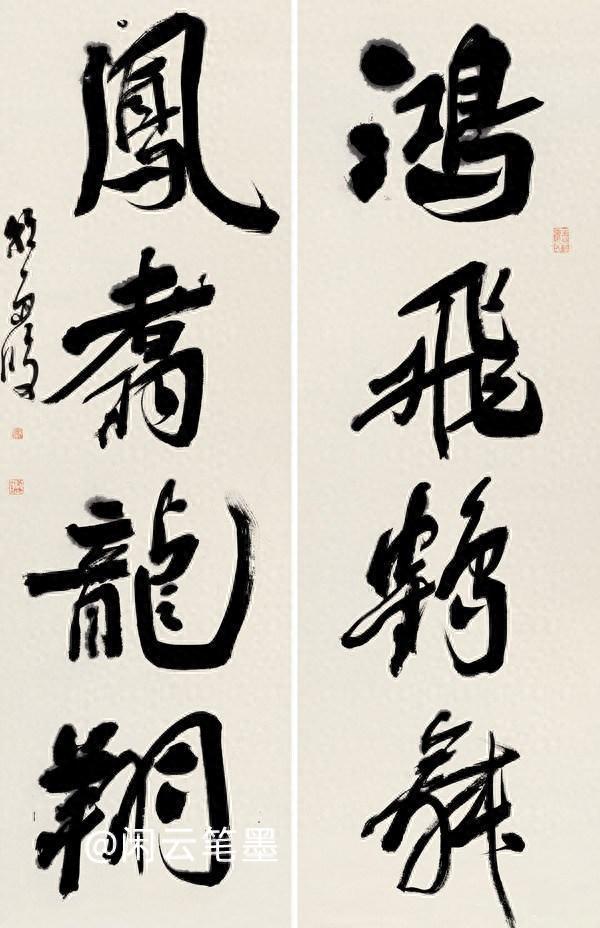 鴻飛鶴舞
鳳翥龍翔
@闲云笔墨